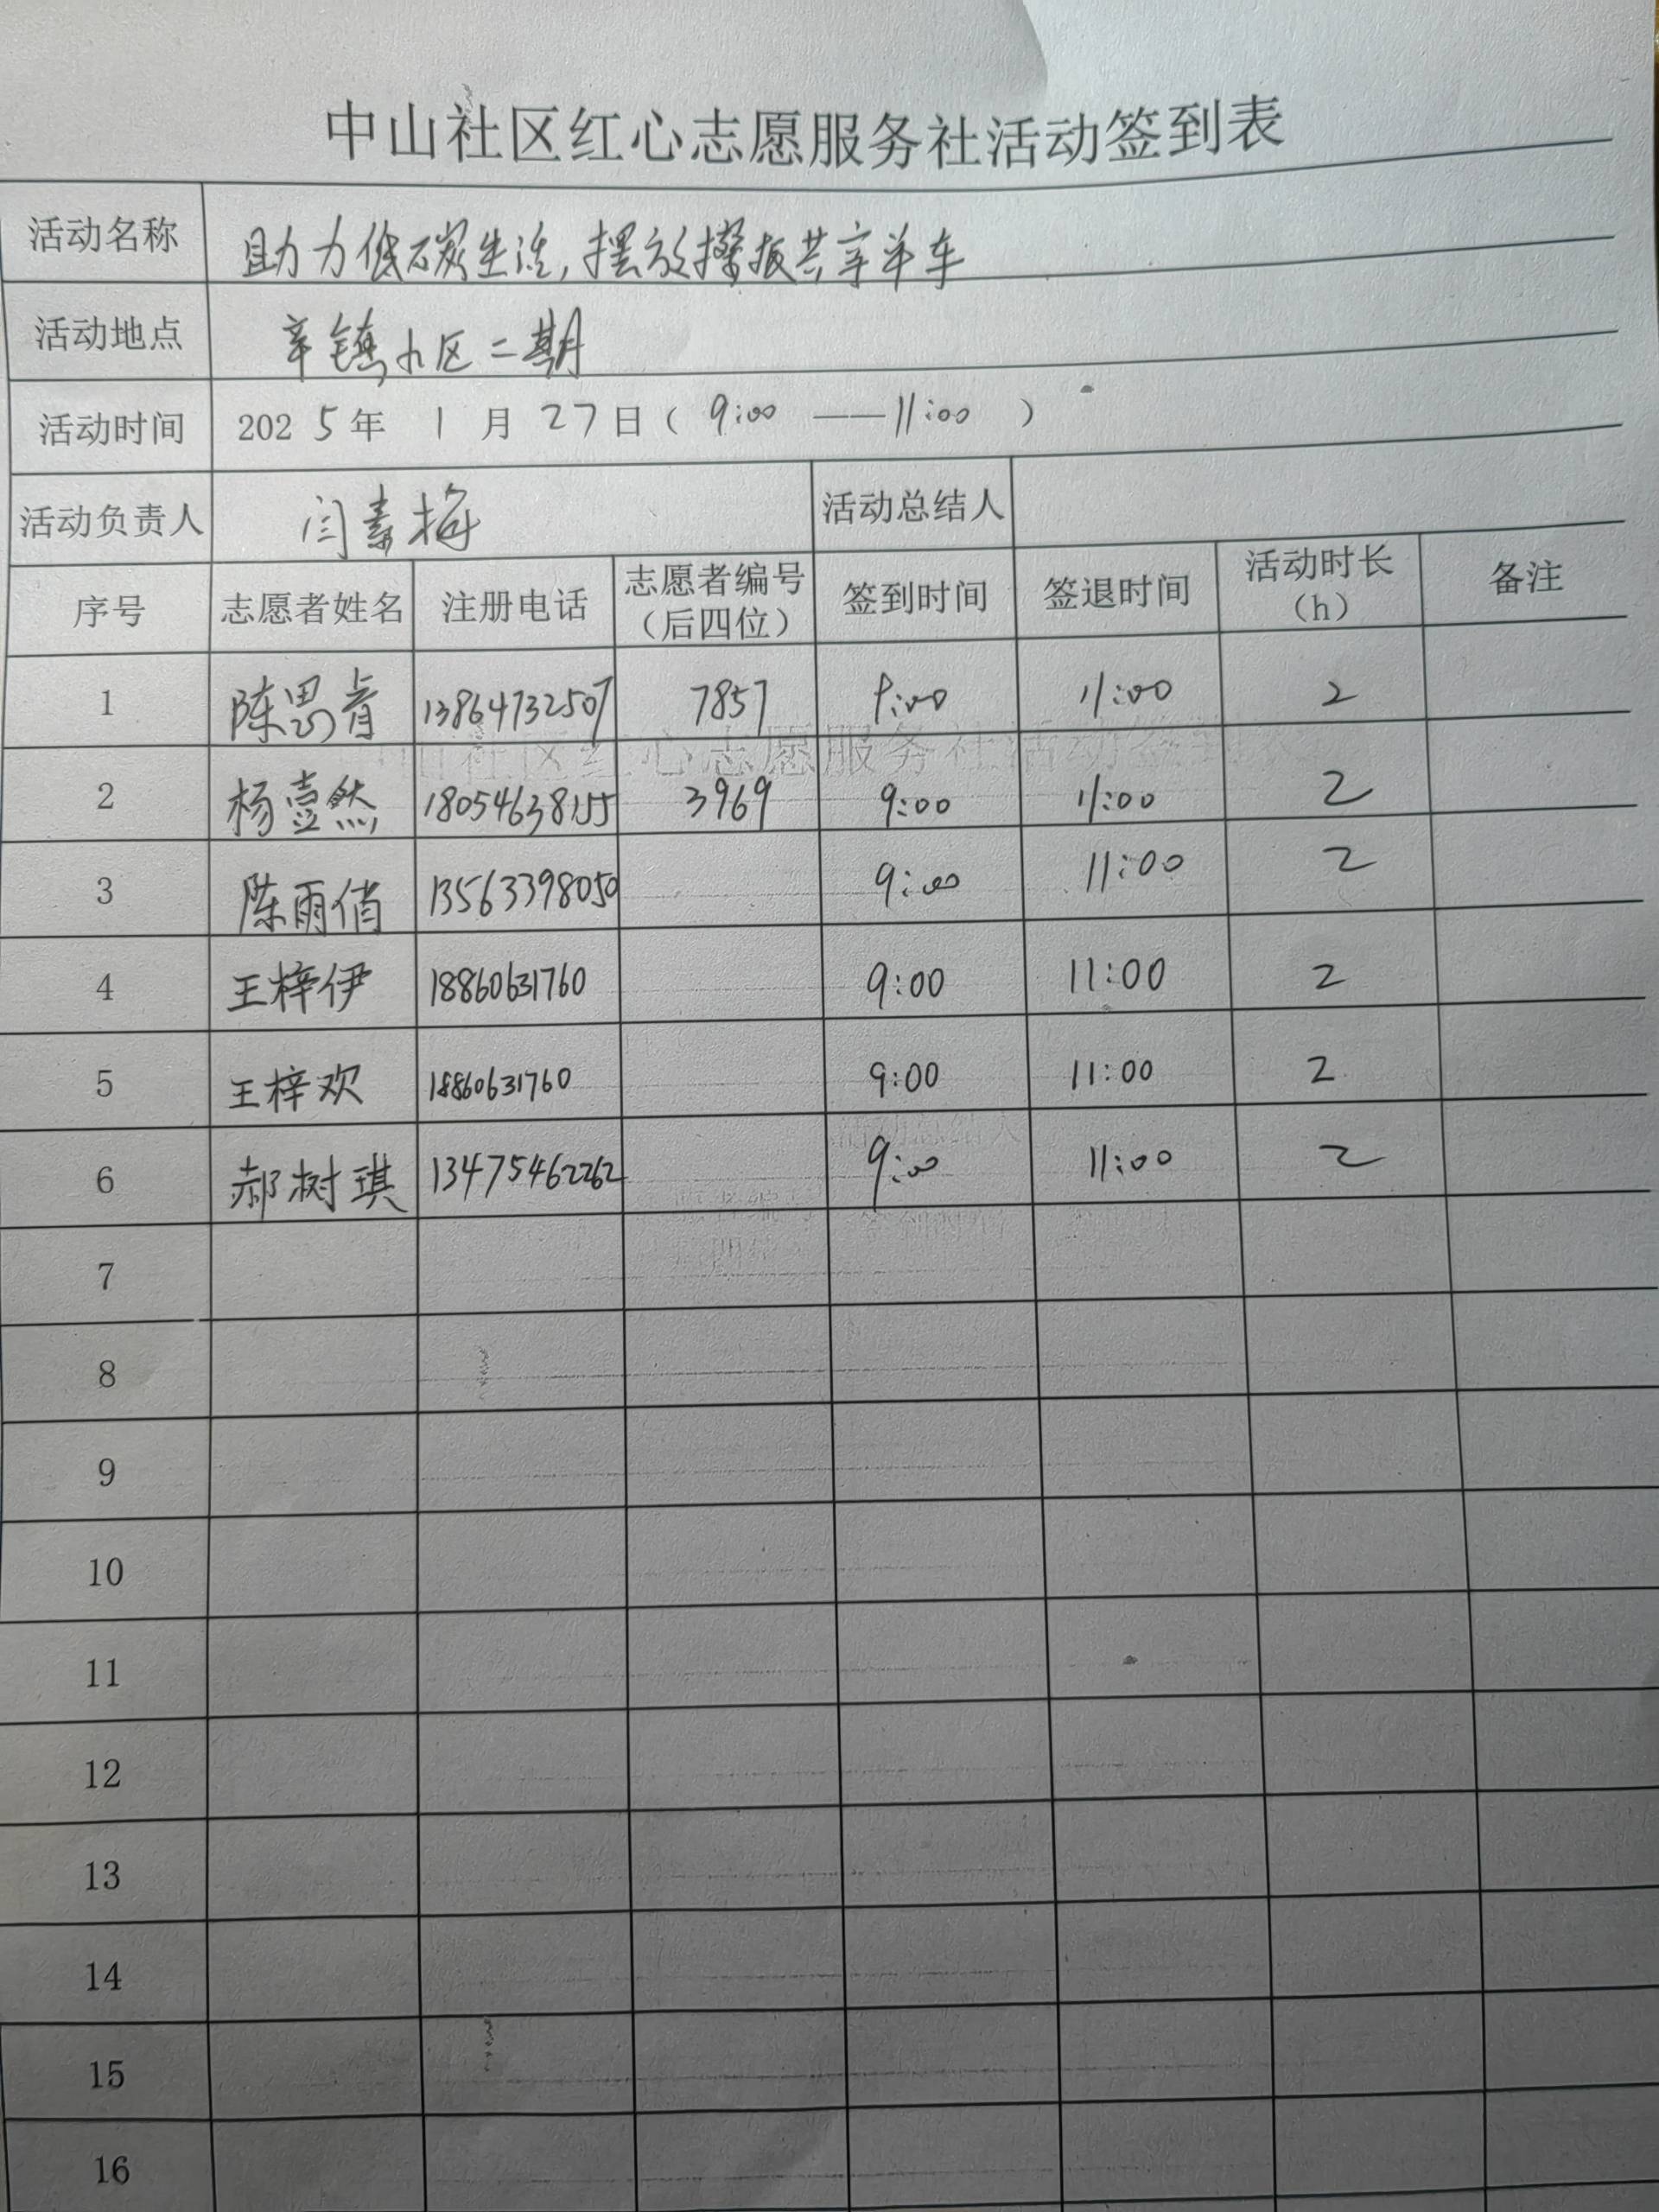 中山社区红心志愿服务社活动签到表
活动名称 助力低碳生活,摆放擦拭共享单车
活动地点 辛镇小区二期
活动时间 2025年 1 月 27日( 9:00 ——11:00 )
活动负责人 闫素梅 活动总结人
序号 志愿者姓名 注册电话 志愿者编号(后四位) 签到时间 签退时间 活动时长(h) 备注
1 陈 13864732507 7857 9:00 11:00 2
2 杨壹然 18054638155 3969 9:00 11:00 2
3 陈雨俏 13563398050 9:00 11:00 2
4 王梓伊 18860631760 9:00 11:00 2
5 王梓欢 18860631760 9:00 11:00 2
6 郝树琪 13475462262 9:00 11:00 2
7
8
9
10
11
12
13
14
15
16